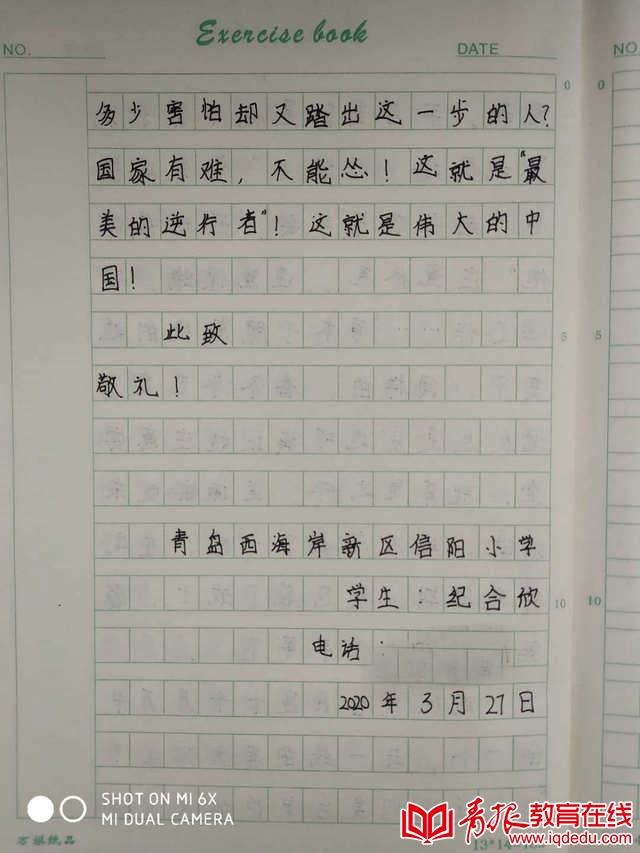 Exercise book
NO.
DATE
NO
0
0
多少害怕却又踏出这一步的人?
国家有难，不能怂！这就是“最
美的逆行者”！这就是伟大的中
国！
此致
5
5
敬礼！
青岛西海岸新区信阳小学
学生：纪合欣
10
10
电话：
2020年3月27日
SHOT ON MI 6X
MI DUAL CAMERA
青报教育在线
www.iqdedu.com